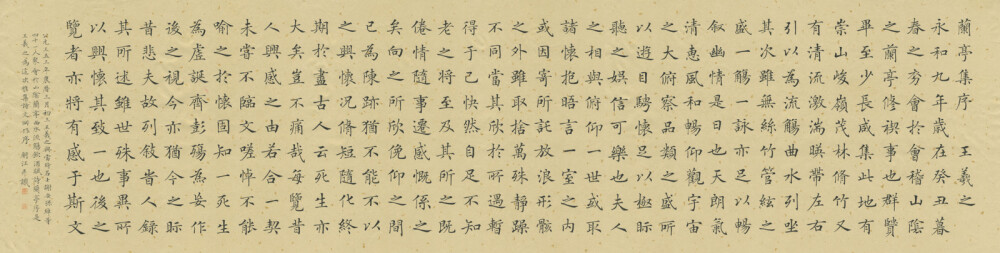 蘭亭集序 王羲之
永和九年歲在癸丑暮
春之初會於會稽山陰
之蘭亭修禊事也群賢
畢至少長咸集此地有
崇山峻嶺茂林脩竹又
有清流激湍暎帶左右
引以為流觴曲水列坐
其次雖無絲竹管絃之
盛一觴一詠亦足以暢
敘幽情是日也天朗氣
清惠風和暢仰觀宇宙
之大俯察品類之盛所
以遊目騁懷足以極眎
聽之娛信可樂也夫人
之相與俯仰一世或取
諸懷抱晤言一室之內
或因寄所託放浪形骸
之外雖取捨萬殊靜躁
不同當其欣於所遇暫
得於己快然自足不知
老之將至及其所之既
倦情隨事遷感慨係之
矣向之所欣俛仰之間
已為陳跡猶不能不以
之興懷況脩短隨化終
期於盡古人云死生亦
大矣豈不痛哉每覽昔
人興感之由若合一契
未嘗不臨文嗟悼不能
喻之於懷固知一死生
為虛誕齊彭殤為妄作
後之眎今亦猶今之眎
昔悲夫故列敘旹人錄
其所述雖世殊事異所
以興懷其致一也後之
覽者亦將有感于斯文
公元三五三年農曆三月初三王羲之與當時名士謝安孫綽等
四十一人聚會於山陰蘭亭曲水流觴飲酒賦詩蘭亭序是
王羲之為這次雅集詩文所作序